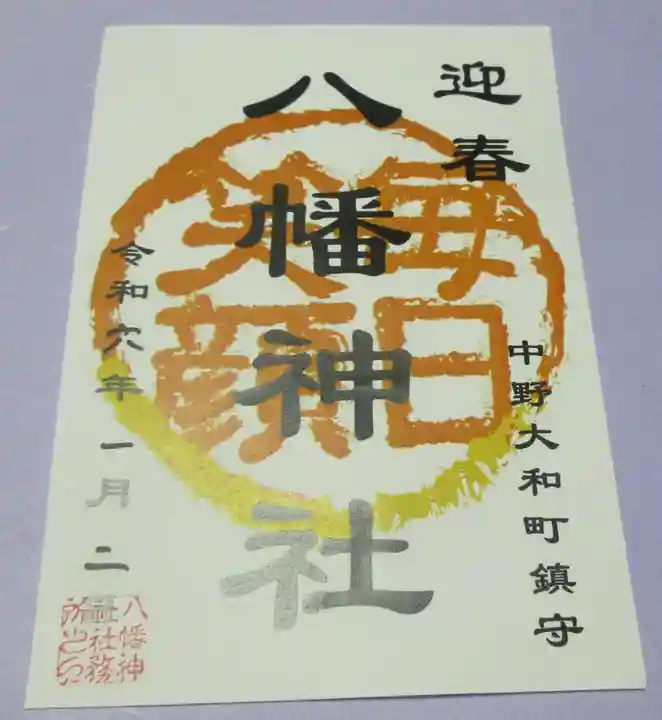 迎春
中野大和町鎮守
八幡神社
毎日
笑顔
令和六年一月二
八幡神
社社務
所之印